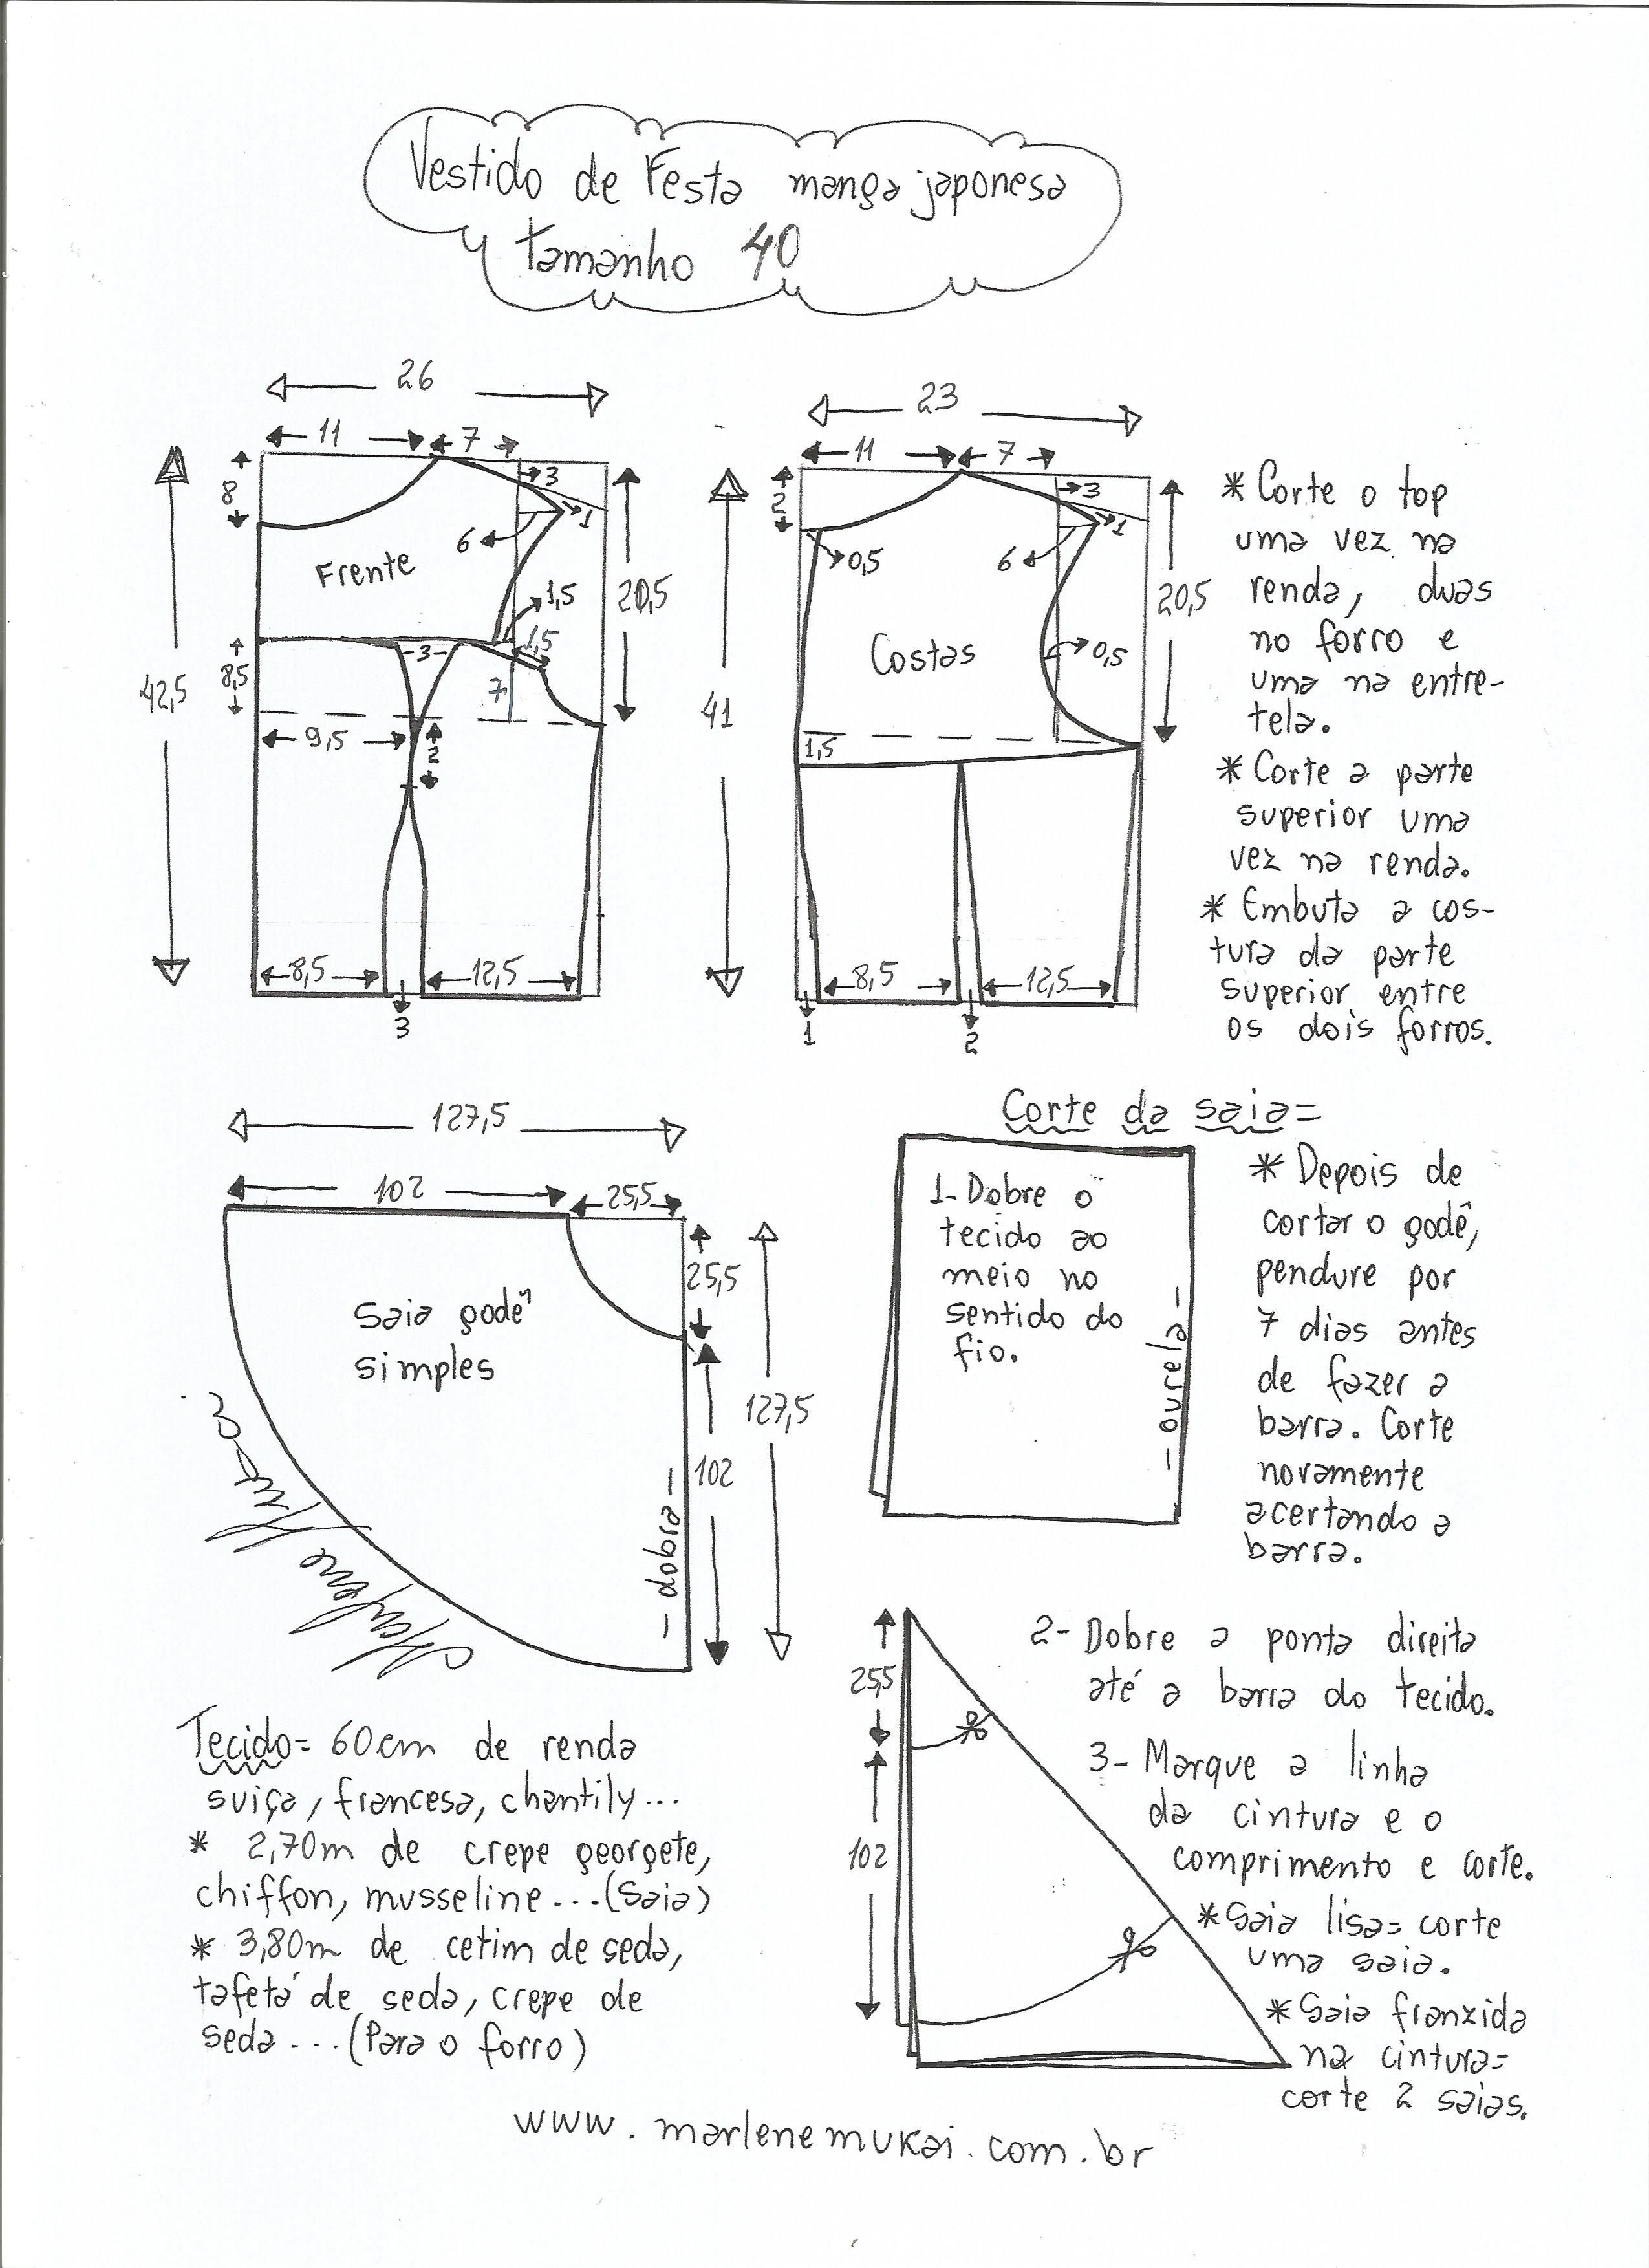 Vestido de Festa manga japonesa
tamanho 40
26
11
7
8
3
1
6
Frente
1,5
20,5
42,5
8,5
3
1,5
7
9,5
2
8,5
12,5
3
23
11
7
2
3
1
0,5
6
20,5
41
Costas
0,5
1,5
8,5
12,5
1
2
* Corte o top
uma vez na
renda, duas
no forro e
uma na entre-
tela.
* Corte a parte
superior uma
vez na renda.
* Embuta a cos-
tura da parte
superior entre
os dois forros.
127,5
102
25,5
25,5
Saia godê
simples
127,5
102
- dobra -
Marlene Mukai
Corte da saia=
1- Dobre o
tecido ao
meio no
sentido do
fio.
- ourela -
* Depois de
cortar o godê,
pendure por
7 dias antes
de fazer a
barra. Corte
novamente
acertando a
barra.
25,5
102
2- Dobre a ponta direita
até a barra do tecido.
3- Marque a linha
da cintura e o
comprimento e corte.
* Saia lisa= corte
uma saia.
* Saia franzida
na cintura=
corte 2 saias.
Tecido= 60cm de renda
suiça, francesa, chantily...
* 2,70m de crepe georgete,
chiffon, musseline...(Saia)
* 3,80m de cetim de seda,
tafetá de seda, crepe de
seda...(Para o forro)
www.marlenemukai.com.br